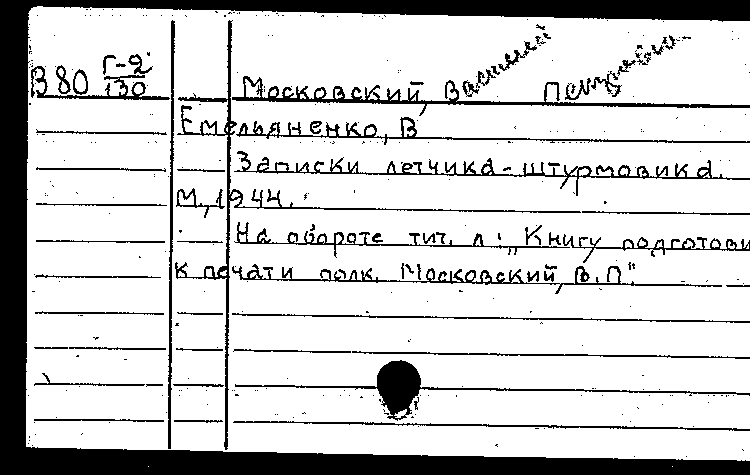 В 80 Г-2
130
Московский, Василий Петрович.
Емельяненко, В
Записки летчика-штурмовика.
М., 1944.
На обороте тит. л: „Книгу подготови
к печати полк. Московский, В.П".